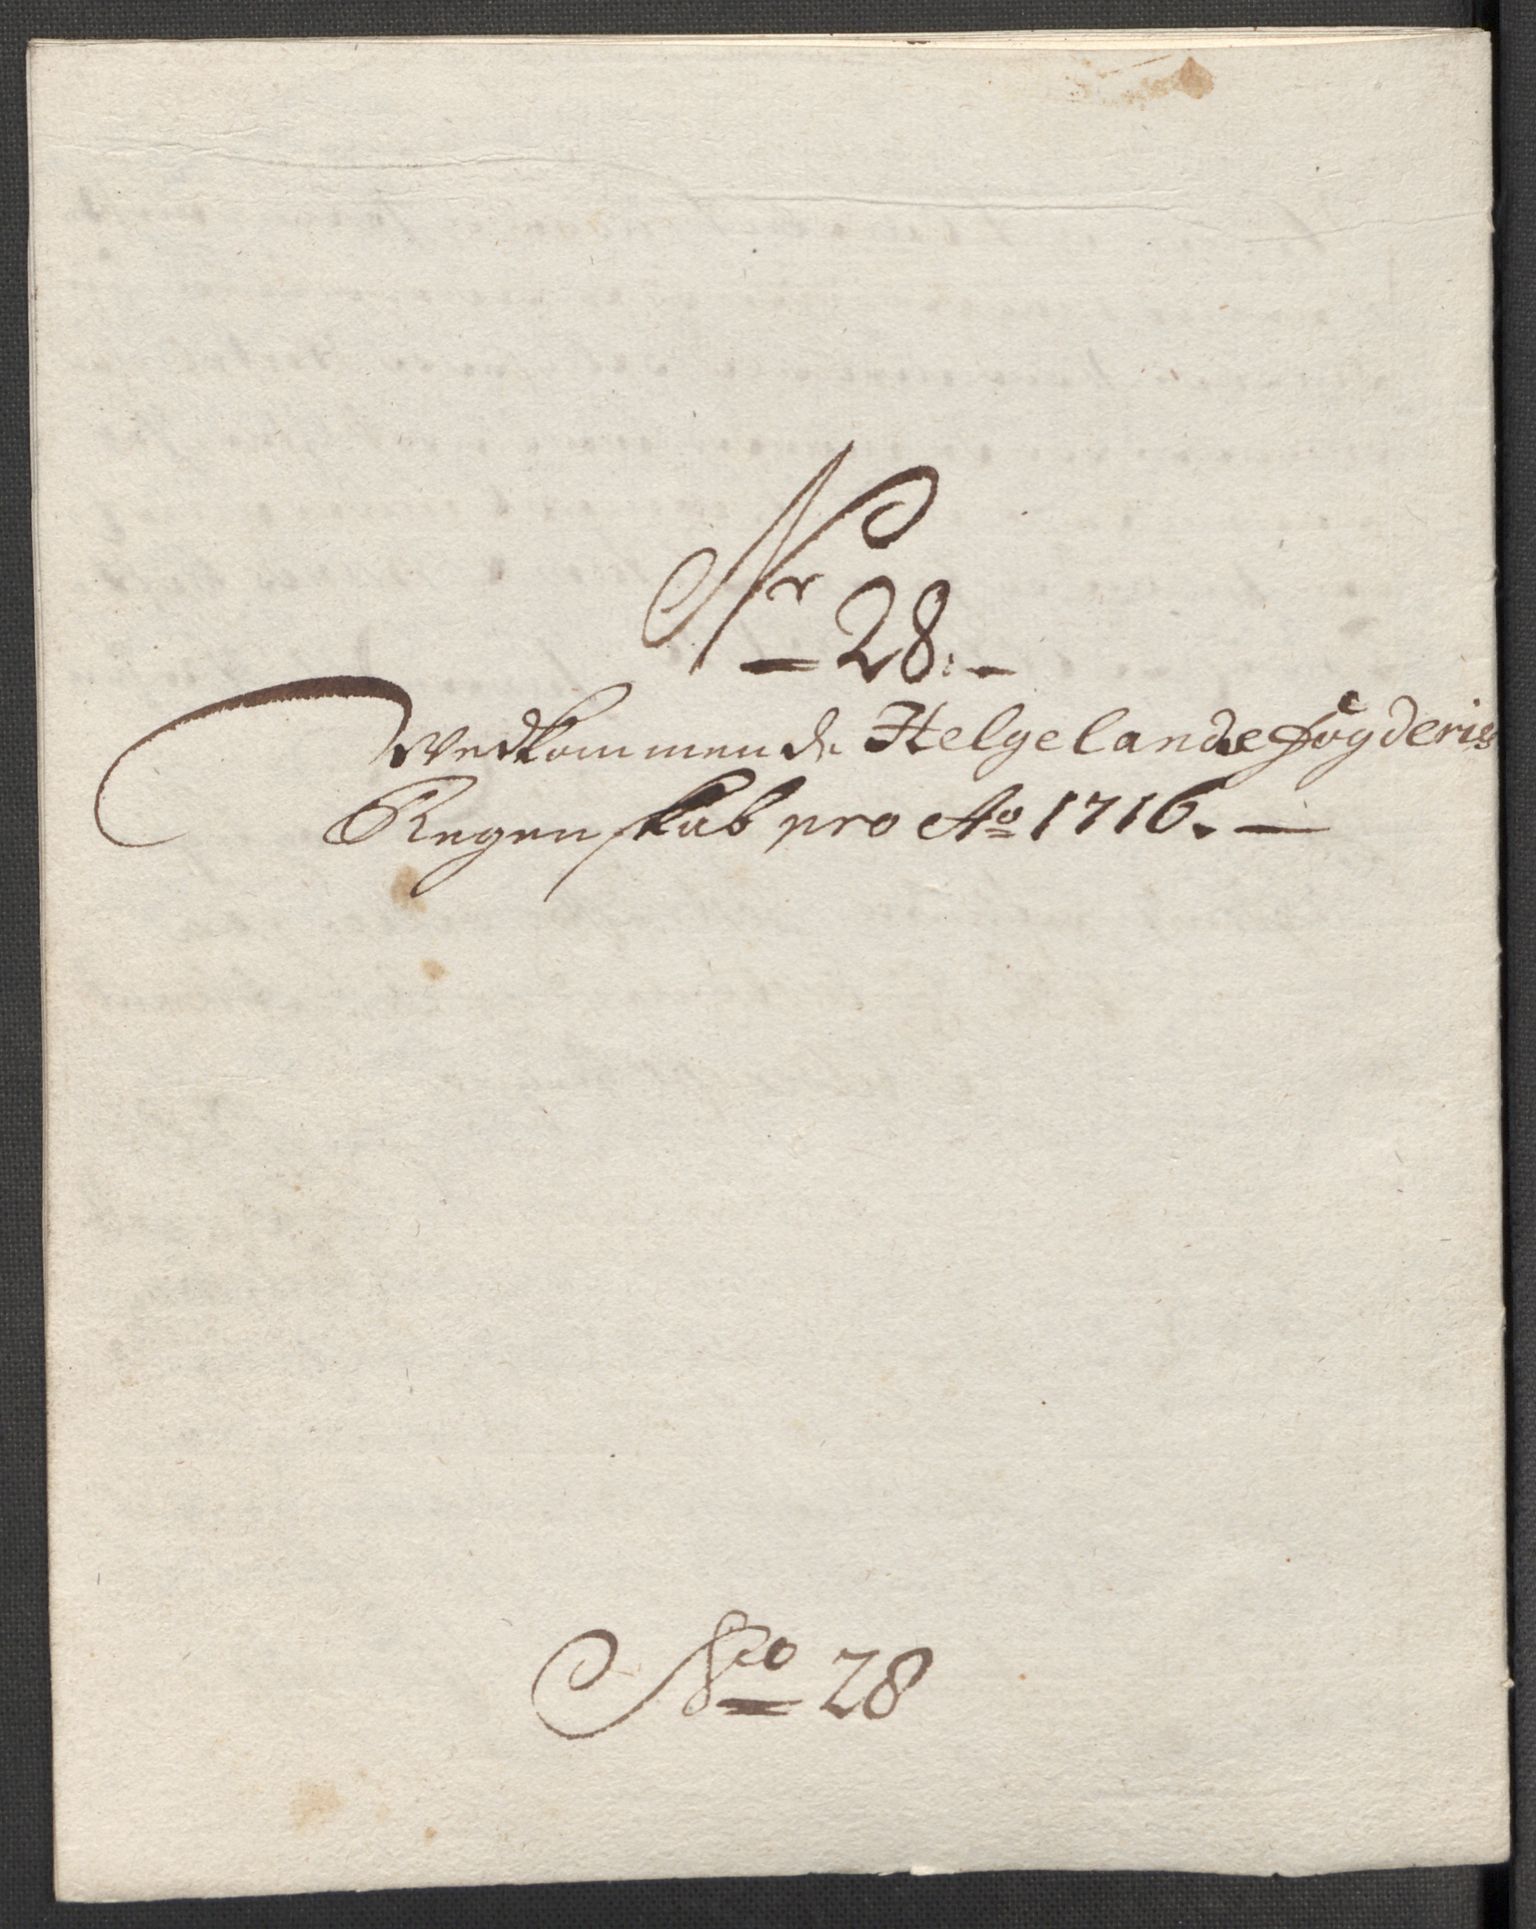 Nr 28.
Vedkommende Helgelands Fogderies
Regenskab pro Ao 1716.
No 28